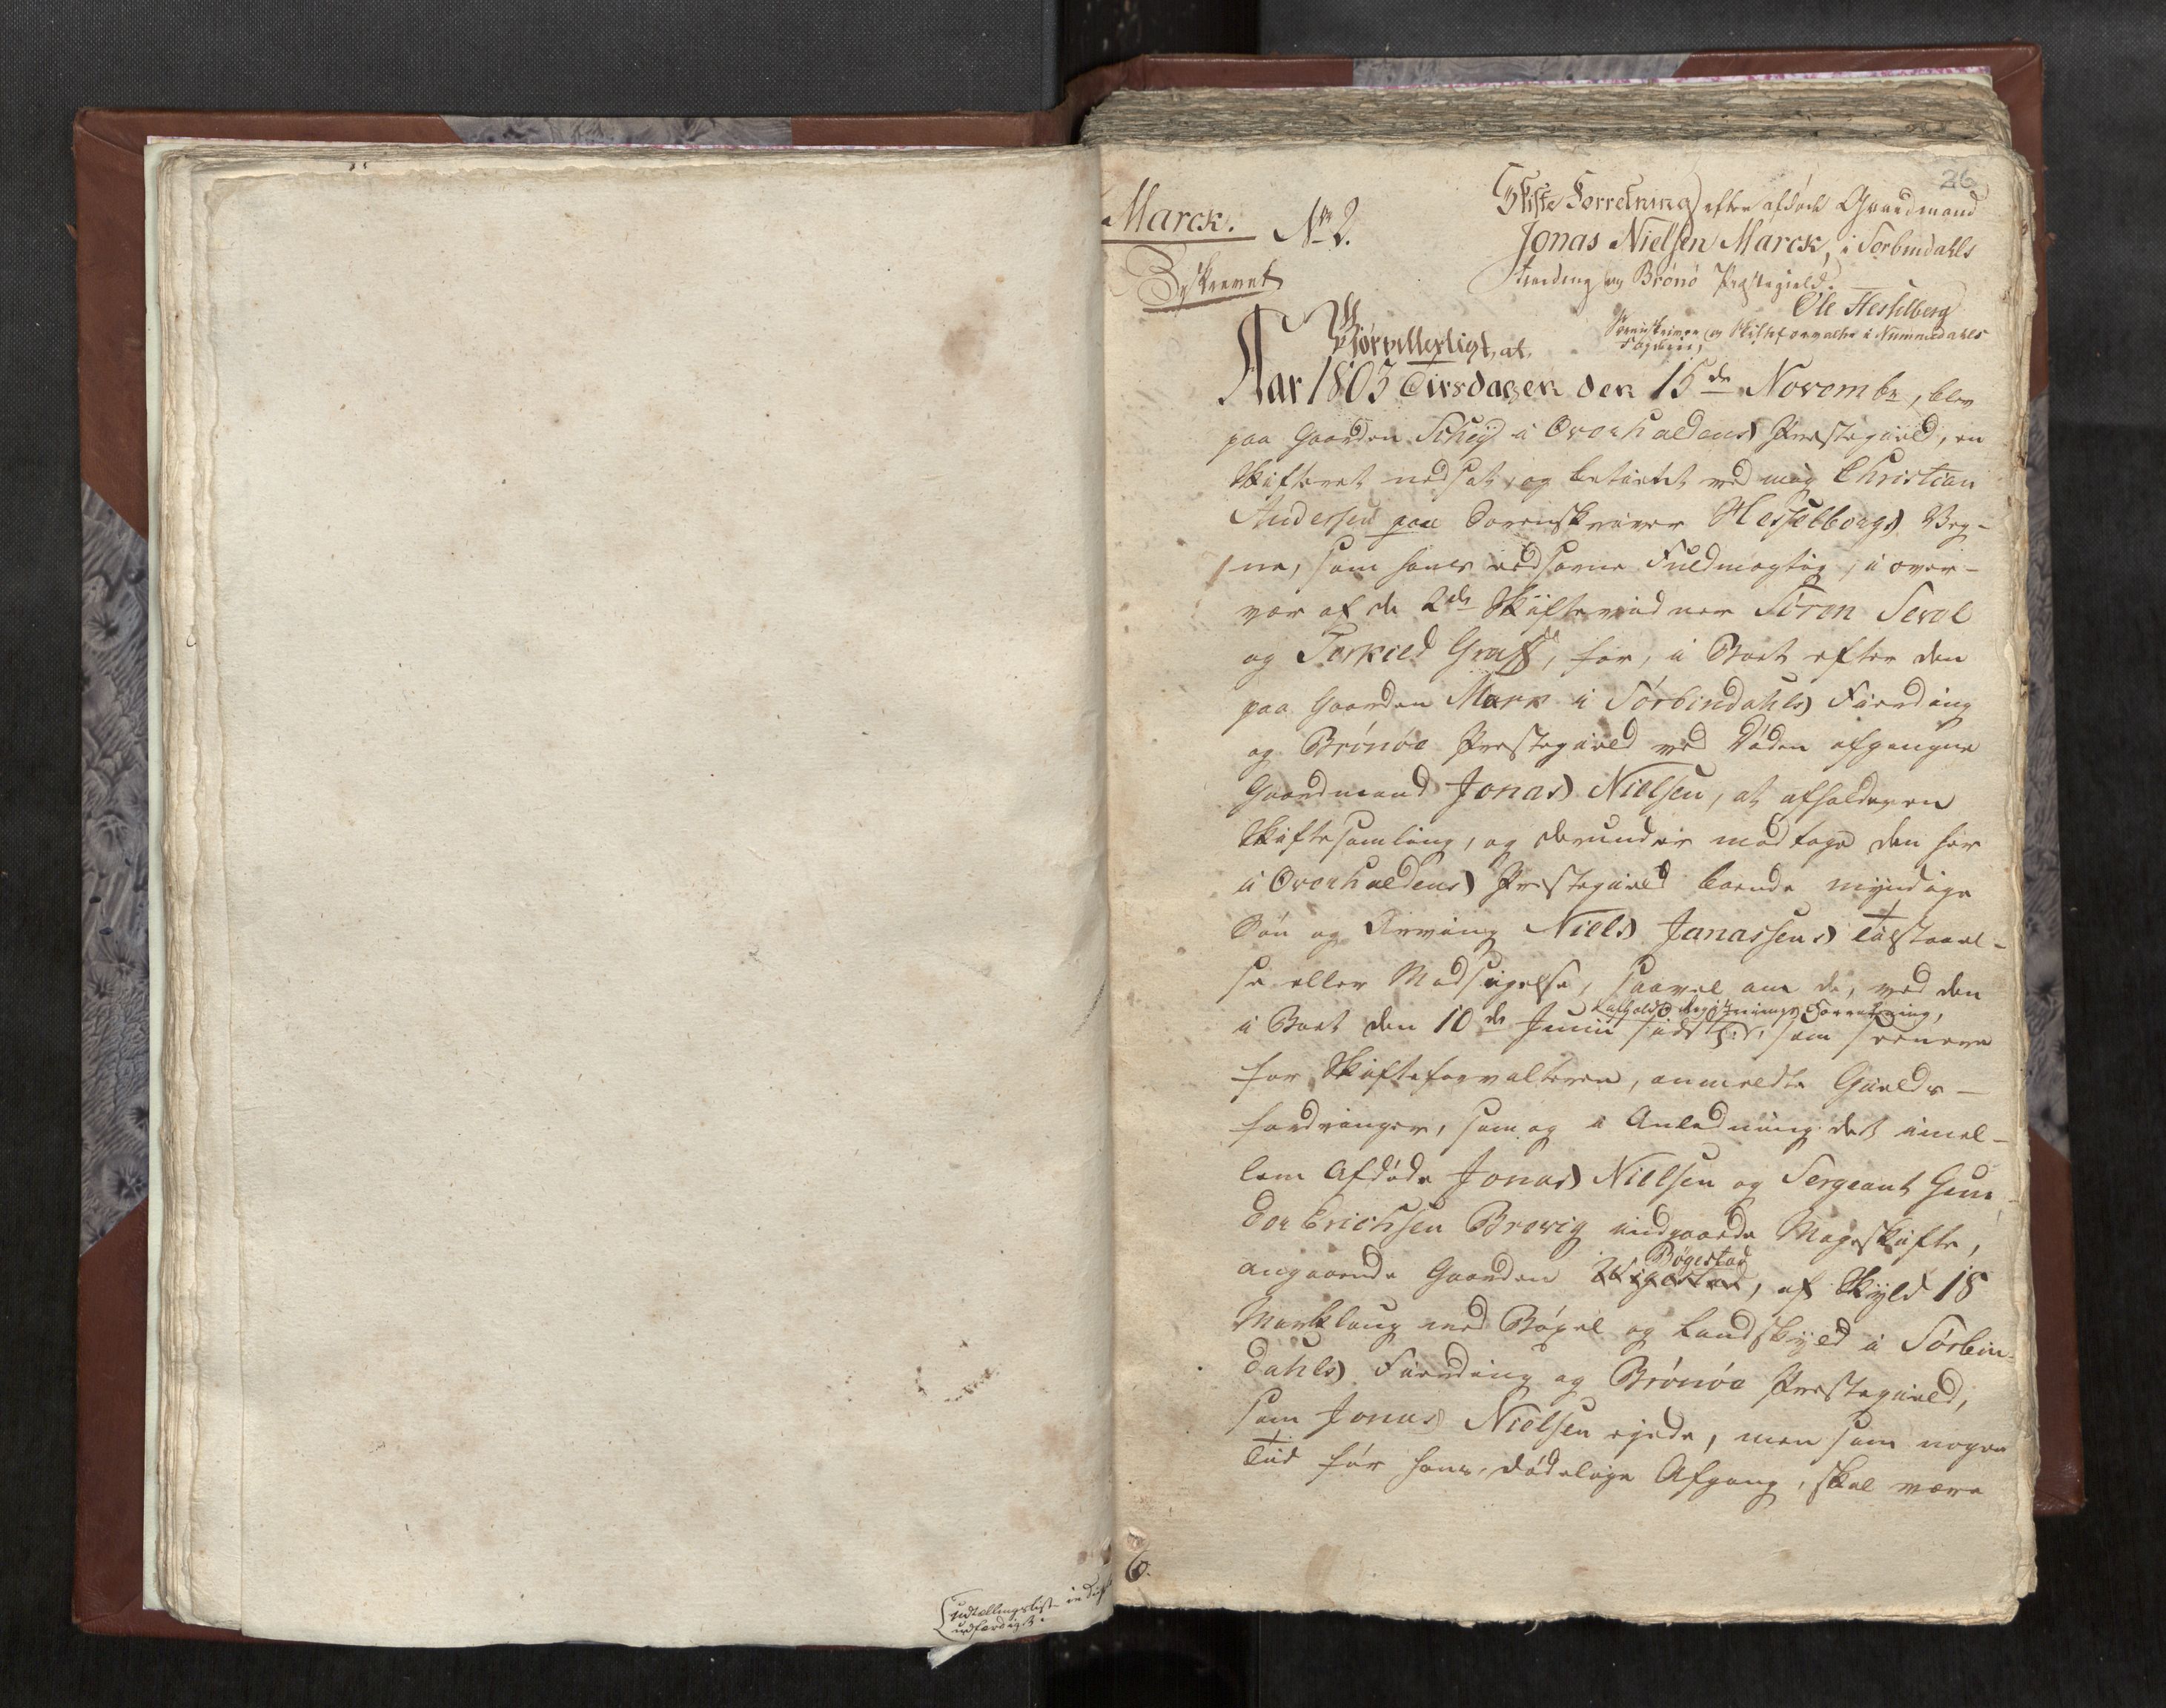 26
Marck.
No 2.
Beskrevet
Skifte Forretning efter afdøde Gaardmand
Jonas Nielsen Marck, i Sørbindahls
Fierding og Brønø Præstegield.
Ole Hesselberg
Sorenskriver og Skifteforvalter i Nummedahls
Fogderie,
Giør vitterligt, at
Aar 1803 Tirsdagen den 15de Novembr, blev
paa Gaarden Schej i Overhaldens Præstegield, en
Skifteret nedsat, og betient ved mig Christian
Andersen paa Sorenskriver Hesselbergs Veg-
ne, som hans eedsorne Fuldmægtig, i over-
vær af de 2de Skiftevidner Sören
og Torkild, for, i Boet efter den
paa Gaarden Mark i Sørbindahls Fierding
og Brönöe Præstegield ved Döden afgangne
Gaardmand Jonas Nielsen, at afholde en
Skiftesamling, og derunder modtage den her
i Overhaldens Præstegield boende myndige
Sön og Arving Niels Janassens tilstaael-
se eller Modsigelse, saavel om de, ved den
afholdte Registrerings Forretning,
i Boet den 10de Junii sidstl: som senere
for Skifteforvalteren, anmeldte Gields-
fordringer, som og i Anledning det imel-
lem Afdöde Jonas Nielsen og Sergeant Gun-
der Erichsen Brevig indgaaede Mageskifte,
Bøgestad
angaaende Gaarden, af Skyld 18
Marklaug med Böxel og Landskyld i Sörbin-
dahls Fierding og Brönöe Præstegield,
som Jonas Nielsen ejede, men som nogen
Tiid för hans dödelige Afgang, skal være
6.
Udtællingslist
udfærdiget.